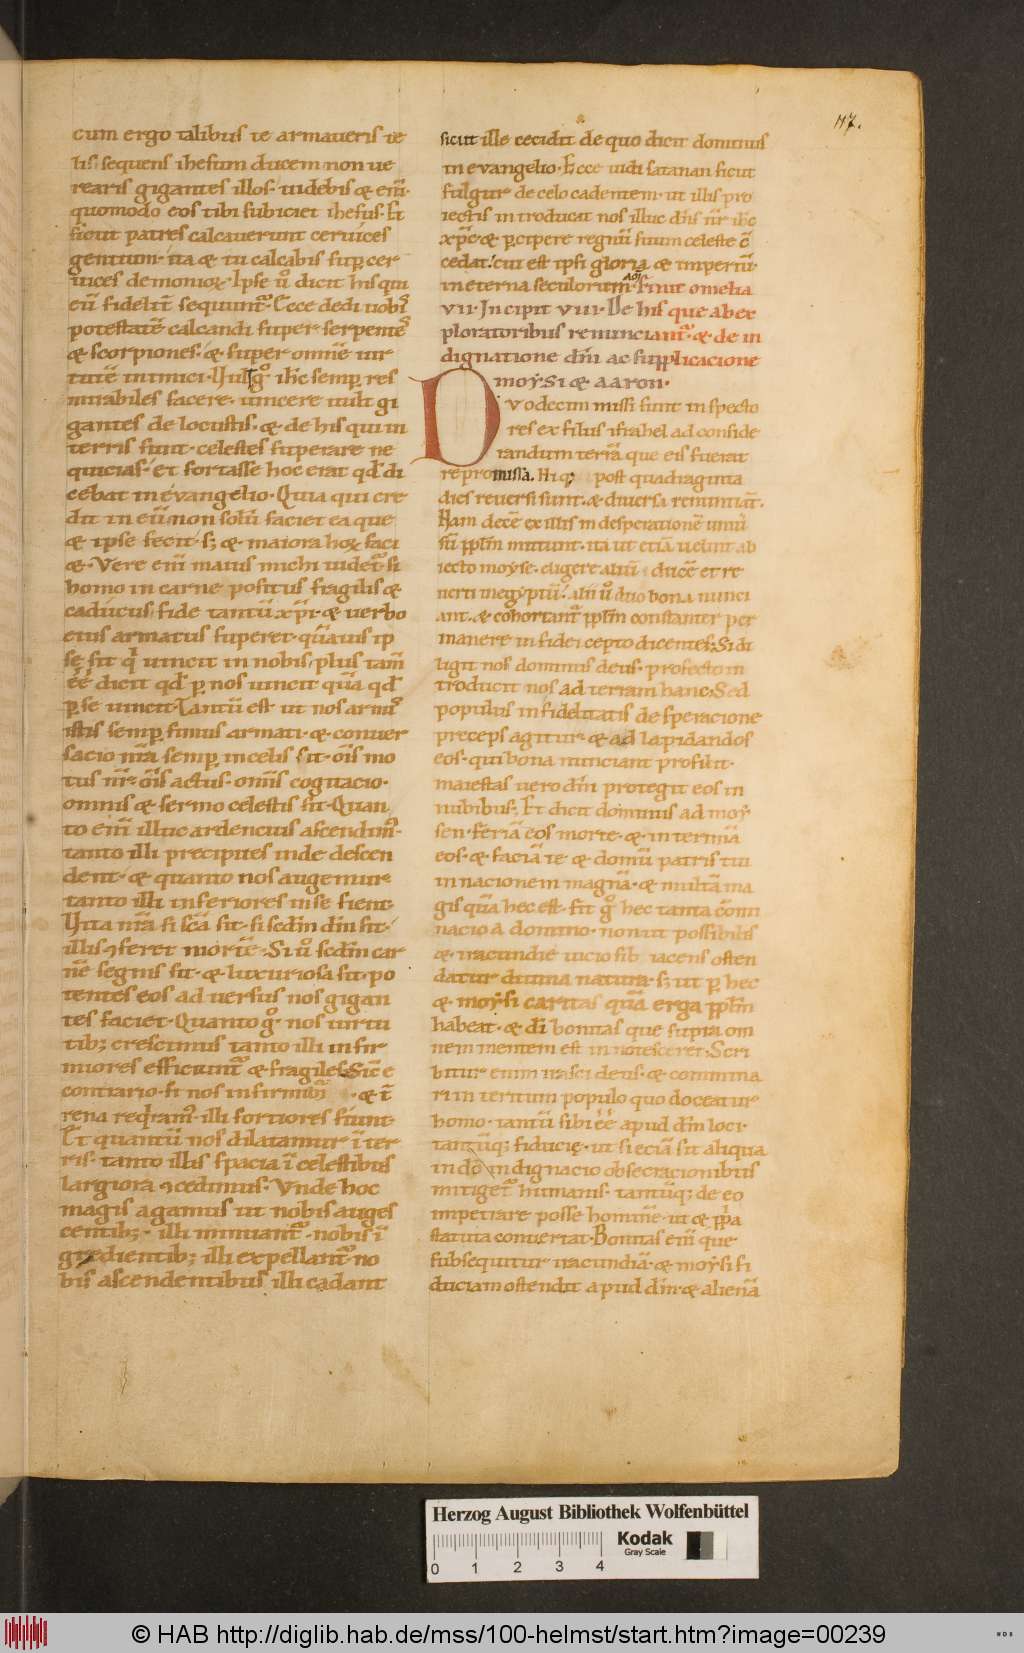 117.
cum ergo talibus te armaueris te
lis sequens ihesum ducem non ue
rearis gigantes illos. uidebis & eni͂.
quomodo eos tibi subiciet ihesus. Et
sicut patres calcauerunt ceruices
gentium. ita & tu calcabis sup̱ cer
uices demonioꝝ. Ipse u͛o dicit his qui
eu͂ fidelit͛ sequunt͛. Ecce dedi uob͛
potestate͂ calcandi super serpente͛
& scorpiones. & super omne͂ uir
tute͂ inimici. Vult g͛o ih͂c semp̱ res
mirabiles facere. uincere uult gi
gantes de locustis. & de his qui in
terris sunt. celestes superare ne
quicias. et fortasse hoc erat qd͛ di
cebat in euangelio. Quia qui cre
dit in eu͂. non solu͂ faciet ea que
& ipse fecit. sꝫ & maiora hoꝝ faci
&. Vere eni͂ maius michi uidet͛ si
homo in carne positus fragilis &
caducus. fide tantu͂ xp͂i. & uerbo
eius armatus superet. qua͂uis ip
se sit qͥ uincit in nobis. plus tam͂
e͂e͂ dicit qd͛ p̱ nos uincit qua͂ qd͛
p̱ se uincit. Tantu͂ est ut nos armi͛
istis semp̱ simus armati. & conuer
sacio nr͂a semp̱ in celis sit. om͂s mo
tus nr͂. om͂s actus. omn͂s cogitacio.
omnis & sermo celestis sit. Quan
to eni͂ illuc ardencius ascendim͛.
tanto illi precipites inde descen
dent. & quanto nos augemur
tanto illi inferiores in se fient.
Vita nr͂a si sc͂a sit. si scdm͂ dm͂ sit.
illis ꝯferet morte͂. Si u͛o scdm͂ car
ne͂ segnis sit. & luxuriosa sit. po
tentes eos aduersus nos gigan
tes faciet. Quanto g͛o nos uirtu
tibꝫ crescimus tanto illi infir
miores efficiunt͛ & fragiles. Sic͂ e
contrario. si nos infirmib͛ . & t͂
rena reqͥram͛. illi fortiores fiunt
Et quantu͂ nos dilatamur i͂ ter
ris. tanto illis spacia i͂ celestibus
largiora ꝯcedimus. Vnde hoc
magis agamus ut nobis auges
centibꝫ. illi minuant͛. nobis i͂
gredientibꝫ illi expellant͛. no
bis ascendentibus illi cadant
sicut ille cecidit de quo dicit dominus
in euangelio. Ecce uidi satanan sicut
fulgur de celo cadentem. ut illis pro
iectis introducat nos illuc dn͂s nr͂ ih͂c
xp͂c. & p̱cipere regnu͂ suum celeste co͂
cedat. cui est ipsi gloria & imperiu͂.
in eterna seculorum. Finit omelia
VII. Incipit VIII. De his que ab ex
ploratoribus renunciant͛. & de in
dignatione dn͂i ac supplicacione
moysi & aaron.
Dvodecim missi sunt inspecto
res ex filiis israhel ad conside
randum terra͂ que eis fuerat
repromissa. Hi qꝫ post quadraginta
dies reuersi sunt. & diuersa renuntia͂t.
Nam dece͂ ex illis in desperatione͂ uniu͛
su͂ ppl͂m mittunt. ita ut etia͂ uelint ab
iecto moyse. eligere aliu͂ duce͂ et re
uerti in egyptu͂. alii u͛o duo bona nunci
ant. & cohortant͛ ppl͂m constanter per
manere in fide. cepto dicentes. Si di
ligit nos dominus deus. profecto in
troducit nos ad terram hanc. Sed
populus infidelitatis desperacione
preceps agitur. & ad lapidandos
eos. qui bona nunciant prosilit.
maiestas uero dn͂i protegit eos in
nubibus. Et dicit dominus ad moy
sen. Feria͂ eos morte. & interima͂
eos. & facia͂ te & domu͂ patris tui
in nacionem magna͂. & multa͂ ma
gis qua͂ hec est. Fit g͛o hec tanta co͂mi
nacio a domino. non ut possibilis
& iracundie uicio subiacens osten
datur diuina natura. sꝫ ut p̱ hec
& moysi caritas qua͂ erga ppl͂m
habeat. & di͂ bonitas que supra om
nem mentem est innotesceret. Scri
bitur enim irasci deus. & commina
ri interitum populo quo doceatur
homo. tantu͂ sibi e͂e͂ apud dm͂ loci.
tantu͂qꝫ fiducię. ut si ecia͂ sit aliqua
in do͂ indignacio obsecracionibus
mitiget͛ humanis. tantu͂qꝫ de eo
impetrare posse homine͂. ut & pp͂a
statuta conuertat. Bonitas eni͂ que
subsequitur iracundia͂. & moysi fi
duciam ostendit apud dm͂. & aliena͂
Herzog August Bibliothek Wolfenbüttel
Kodak
Gray Scale
0 1 2 3 4
© HAB http://diglib.hab.de/mss/100-helmst/start.htm?image=00239